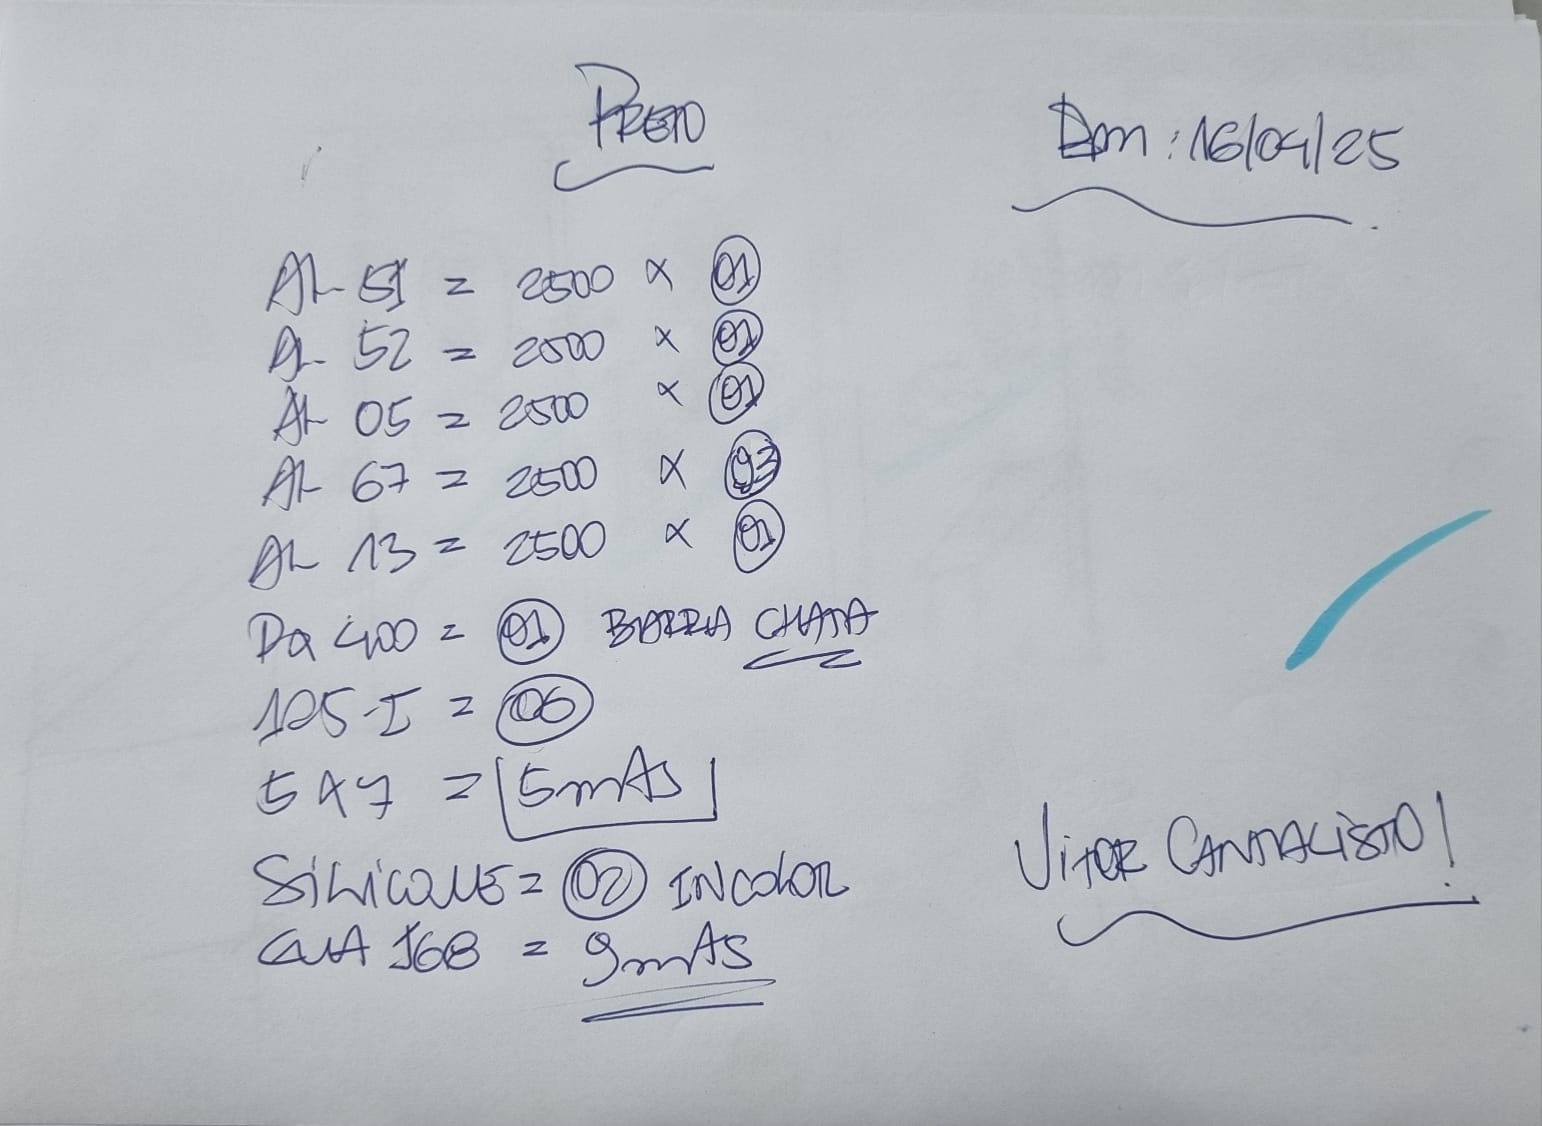 PRETO
Dm: 16/04/25
AL 51 = 2500 x 01
AL 52 = 2500 x 01
AL 05 = 2500 x 01
AL 67 = 2500 x 03
AL 13 = 2500 x 01
Pa 400 = 01 BARRA CHATA
125-I = 06
5x7 = 5mts
SiLicoNE = 02 INcoloR
GUA 168 = 9mts
ViTOR